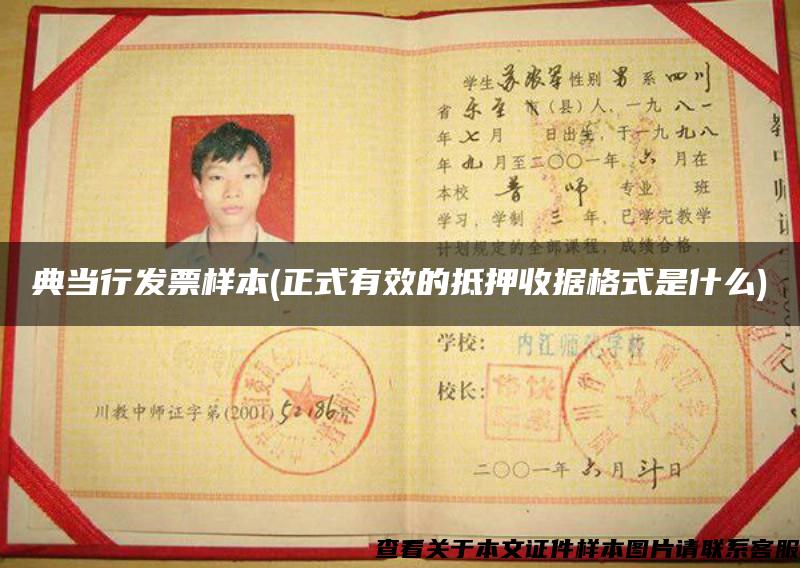 学生苏 性别 男 系 四川
省 乐至 市(县)人,一九 八一
年 七 月 日出生,于一九 九八
年 九 月至二〇〇一年 六 月在
本校 普 师 专业 班
学习,学制 三 年,已学完教学
计划规定的全部课程,成绩合格,
典当行发票样本(正式有效的抵押收据格式是什么)
学校: 内江师范学校
校长:
川教中师证字第(2001)52186号
二〇〇一年 六 月 日
查看关于本文证件样本图片请联系客服